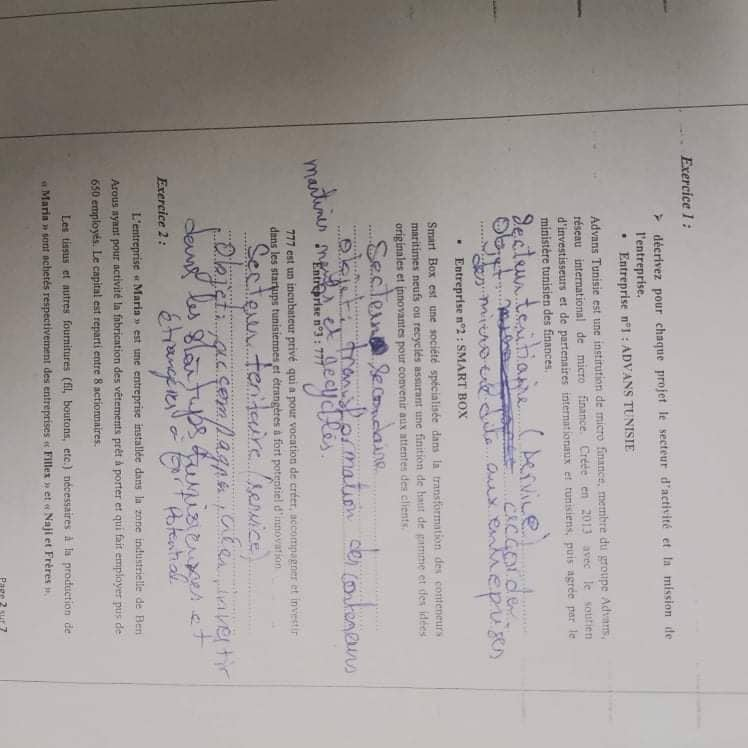 Exercice 1 :
➢ décrivez pour chaque projet le secteur d'activité et la mission de
l'entreprise.
• Entreprise n°1 : ADVANS TUNISIE
Advans Tunisie est une institution de micro finance, membre du groupe Advans,
réseau international de micro finance. Créée en 2013 avec le soutien
d'investisseurs et de partenaires internationaux et tunisiens, puis agrée par le
ministère tunisien des finances.
Secteur teritiaire (service)
Objet
des micro crédits aux entreprises
• Entreprise n°2 : SMART BOX
Smart Box est une société spécialisée dans la transformation des conteneurs
maritimes neufs ou recyclés assurant une finition de haut de gamme et des idées
originales et innovantes pour convenir aux attentes des clients.
Secteur secondaire
objet : transformation des conteneurs
maritimes neufs et recyclés
• Entreprise n°3 : 777
777 est un incubateur privé qui a pour vocation de créer, accompagner et investir
dans les startups tunisiennes et étrangères à fort potentiel d'innovation
Secteur teritaire (service)
Objet : accompagner, créer, invertir
dans les startups tunisiennes et
étrangères à fort Potentiel
Exercice 2 :
L'entreprise « Maria » est une entreprise installée dans la zone industrielle de Ben
Arous ayant pour activité la fabrication des vêtements prêt à porter et qui fait employer pus de
650 employés. Le capital est reparti entre 8 actionnaires.
Les tissus et autres fournitures (fil, boutons, etc.) nécessaires à la production de
« Maria » sont achetés respectivement des entreprises « Fillex » et « Naji et Frères ».
Page 2 sur 7